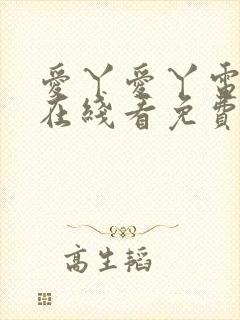 愛丫愛丫電
在綫看免費
高生韜